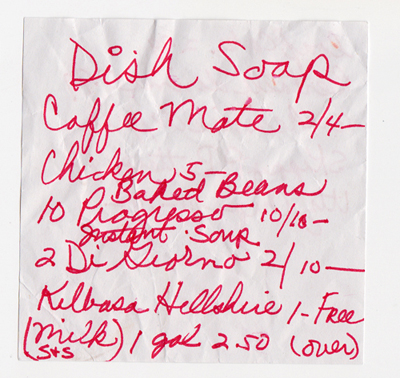 Dish Soap
Coffee Mate 2/4-
Chicken 5-
Baked Beans
10 Progresso 10/10-
Instant Soup
2 Di Giorno 2/10-
Kilbasa Hillshire 1-Free
(Milk) 1 gal 2.50 (over)
S+S